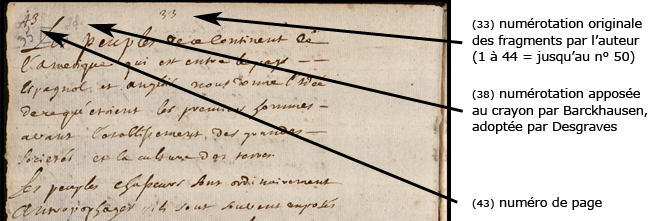 43
38
33
33
Les peuples de ce continent de
l'amerique qui est entre le pays
Espagnol et anglois nous donne l'idée
de ce qu'etoient les premiers hommes
avant l'etablissement des grandes
societés et la culture des terres.
Les peuples chasseurs sont ordinairement
antropophages ils sont souvent exposés
(33) numérotation originale
des fragments par l'auteur
(1 à 44 = jusqu'au n° 50)
(38) numérotation apposée
au crayon par Barckhausen,
adoptée par Desgraves
(43) numéro de page